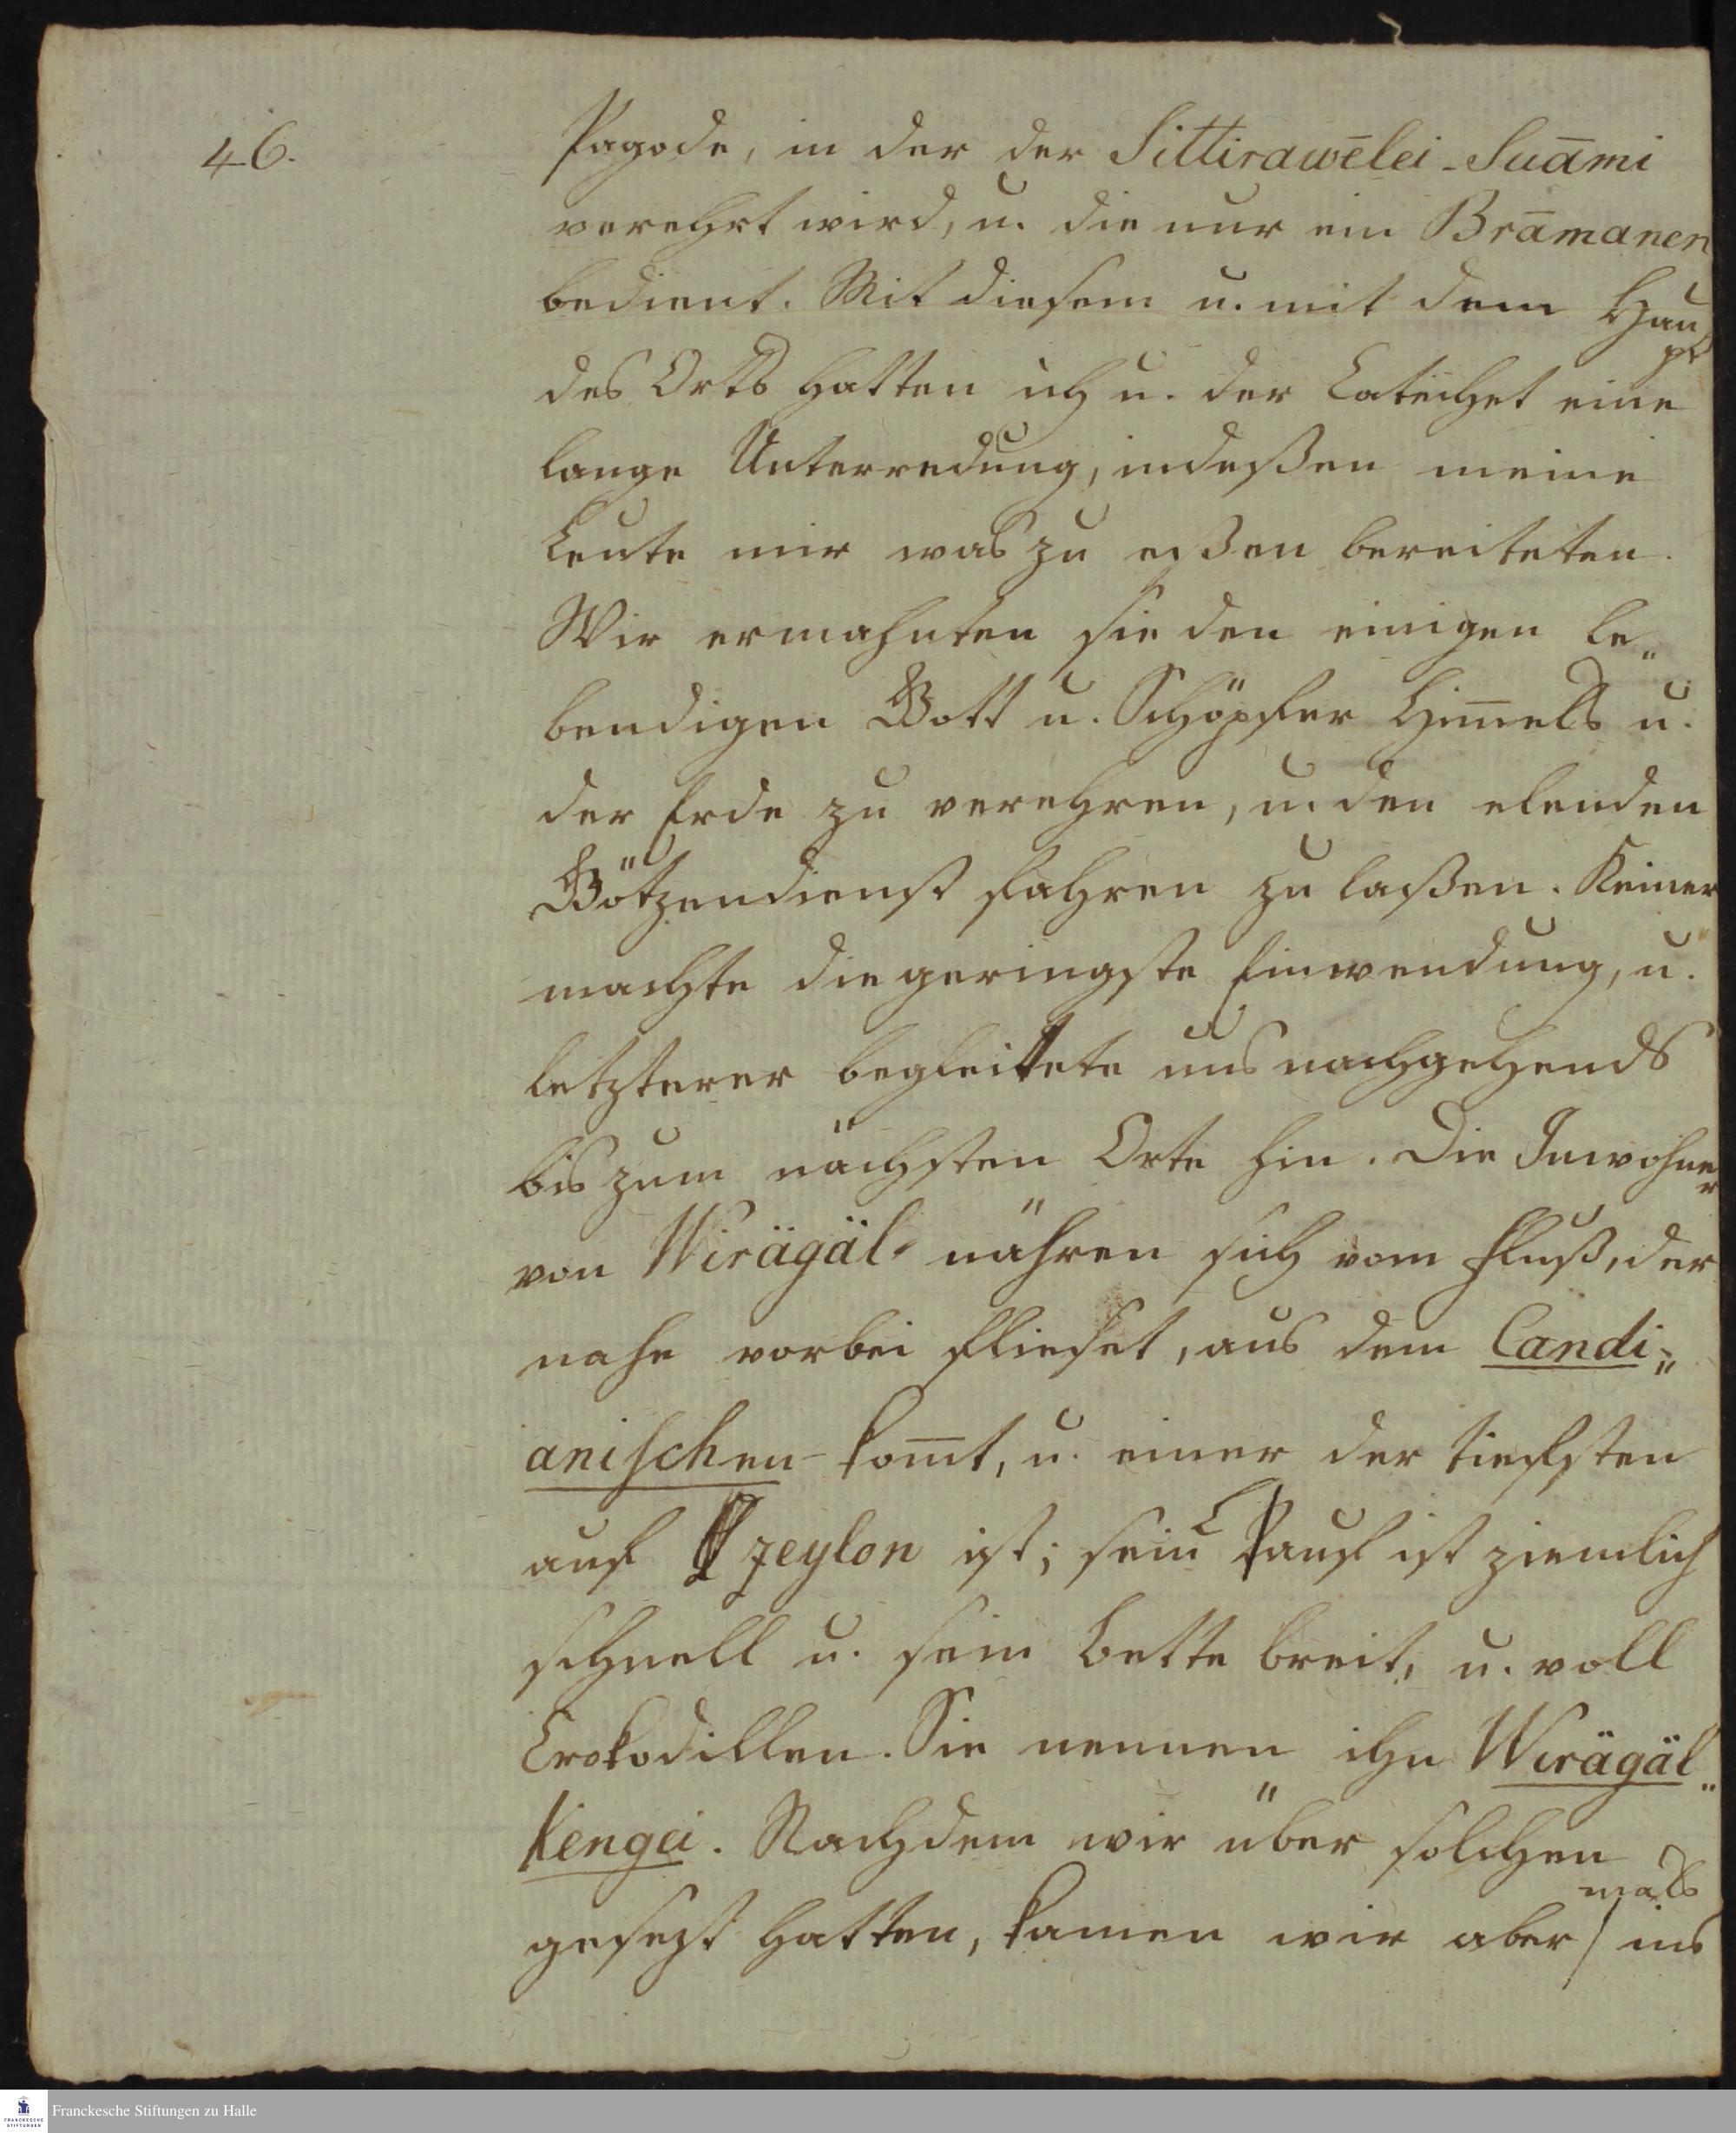 46.
Pagode, in der der Sittirawēlei-Suāmi
verehrt wird, u. die nur ein Brāmanen
bedient. Mit diesem u. mit dem Haupt
des Orts hatten ich u. der Catechet eine
lange Unterredung, indeßen meine
Leute mir was zu eßen bereiteten.
Wir ermahnten sie den einigen le„
bendigen Gott u. Schöpfer Him̅els u.
der Erde zu verehren, u. den elenden
Götzendienst fahren zu laßen. Keiner
machte die geringste Einwendung, u.
letzterer begleitete uns nachgehends
bis zum nächsten Orte hin. Die Inwohner
von Wirägäl nähren sich vom Fluß, der
nahe vorbei flieset, aus dem Candi„
anischen kom̅t, u. einer der tiefsten
auf Zeylon ist; sein Lauf ist ziemlich
schnell u. sein Bette breit, u. voll
Crokodillen. Sie nennen ihn Wirägäl„
Kengei. Nachdem wir über solchen
gesezt hatten, kamen wir abermals ins
Franckesche Stiftungen zu Halle